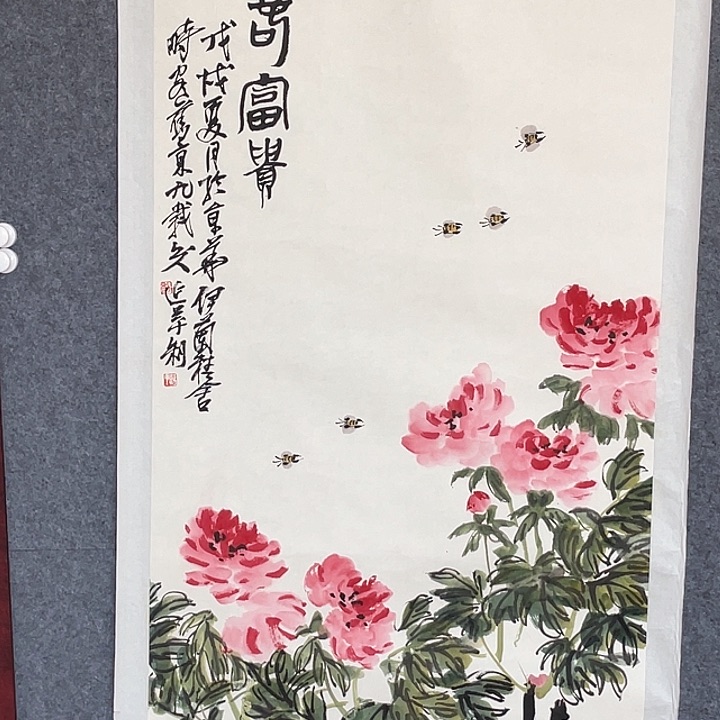 富貴
戊戌夏月於京華伊蘭桂舍
時客舊京九載矣